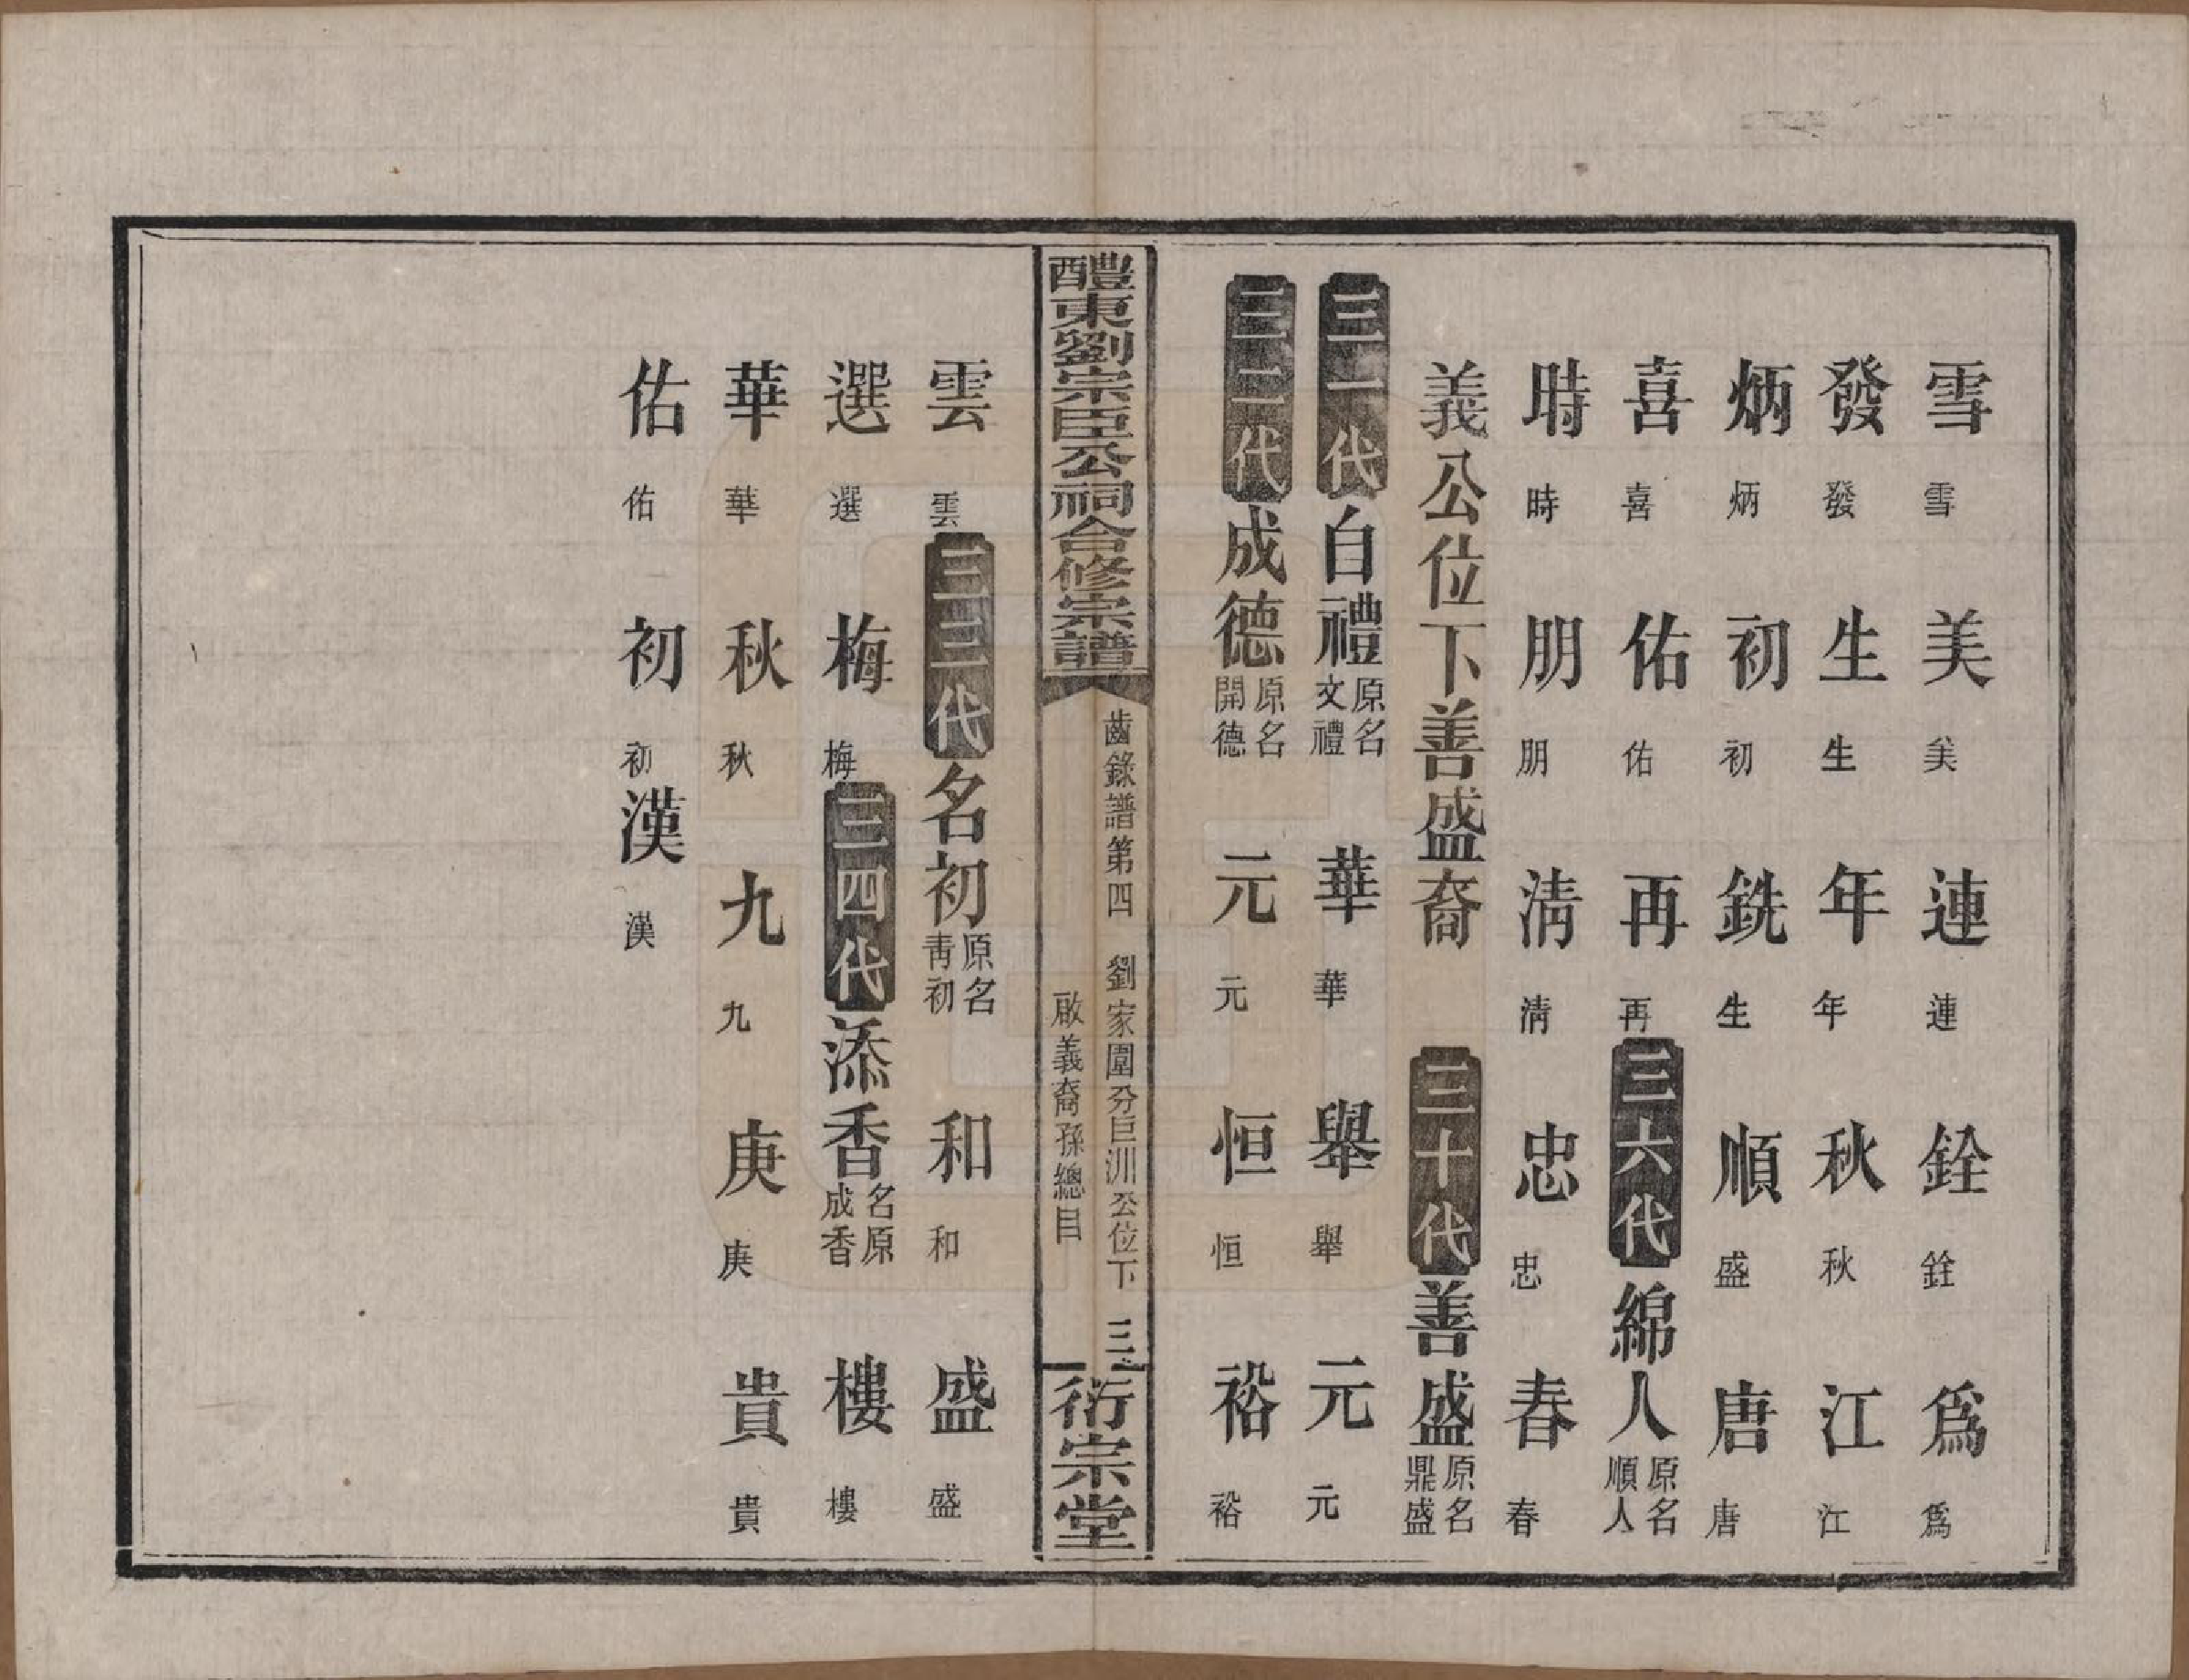 雪 雪 美 美 連 連 銓 銓 爲 爲
發 發 生 生 年 年 秋 秋 江 江
炳 炳 初 初 銑 生 順 盛 唐 唐
喜 喜 佑 佑 再 再 三六代 綿人 原名順人
時 時 朋 朋 淸 淸 忠 忠 春 春
義公位下善盛裔 三十代 善盛 原名鼎盛
三一代 自禮 原名文禮 華 華 舉 舉 元 元
三二代 成德 原名開德 元 元 恒 恒 裕 裕
醴東劉宗臣公祠合修宗譜
齒錄譜第四 劉家園分巨洲公位下 三
啟義裔孫總目
衍宗堂
雲 雲 三三代 名初 原名靑初 和 和 盛 盛
選 選 梅 梅 三四代 添香 名原成香 樓 樓
華 華 秋 秋 九 九 庚 庚 貴 貴
佑 佑 初 初 漢 漢